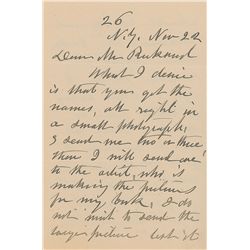 26
N.Y. Nov 22
Dear Mr
What I desire
is that you get the
names, all right in
a small photograph,
& send me two or three,
then I will send one
to the artist, who is
making the pictures
for my book, I do
not wish to send the
larger picture